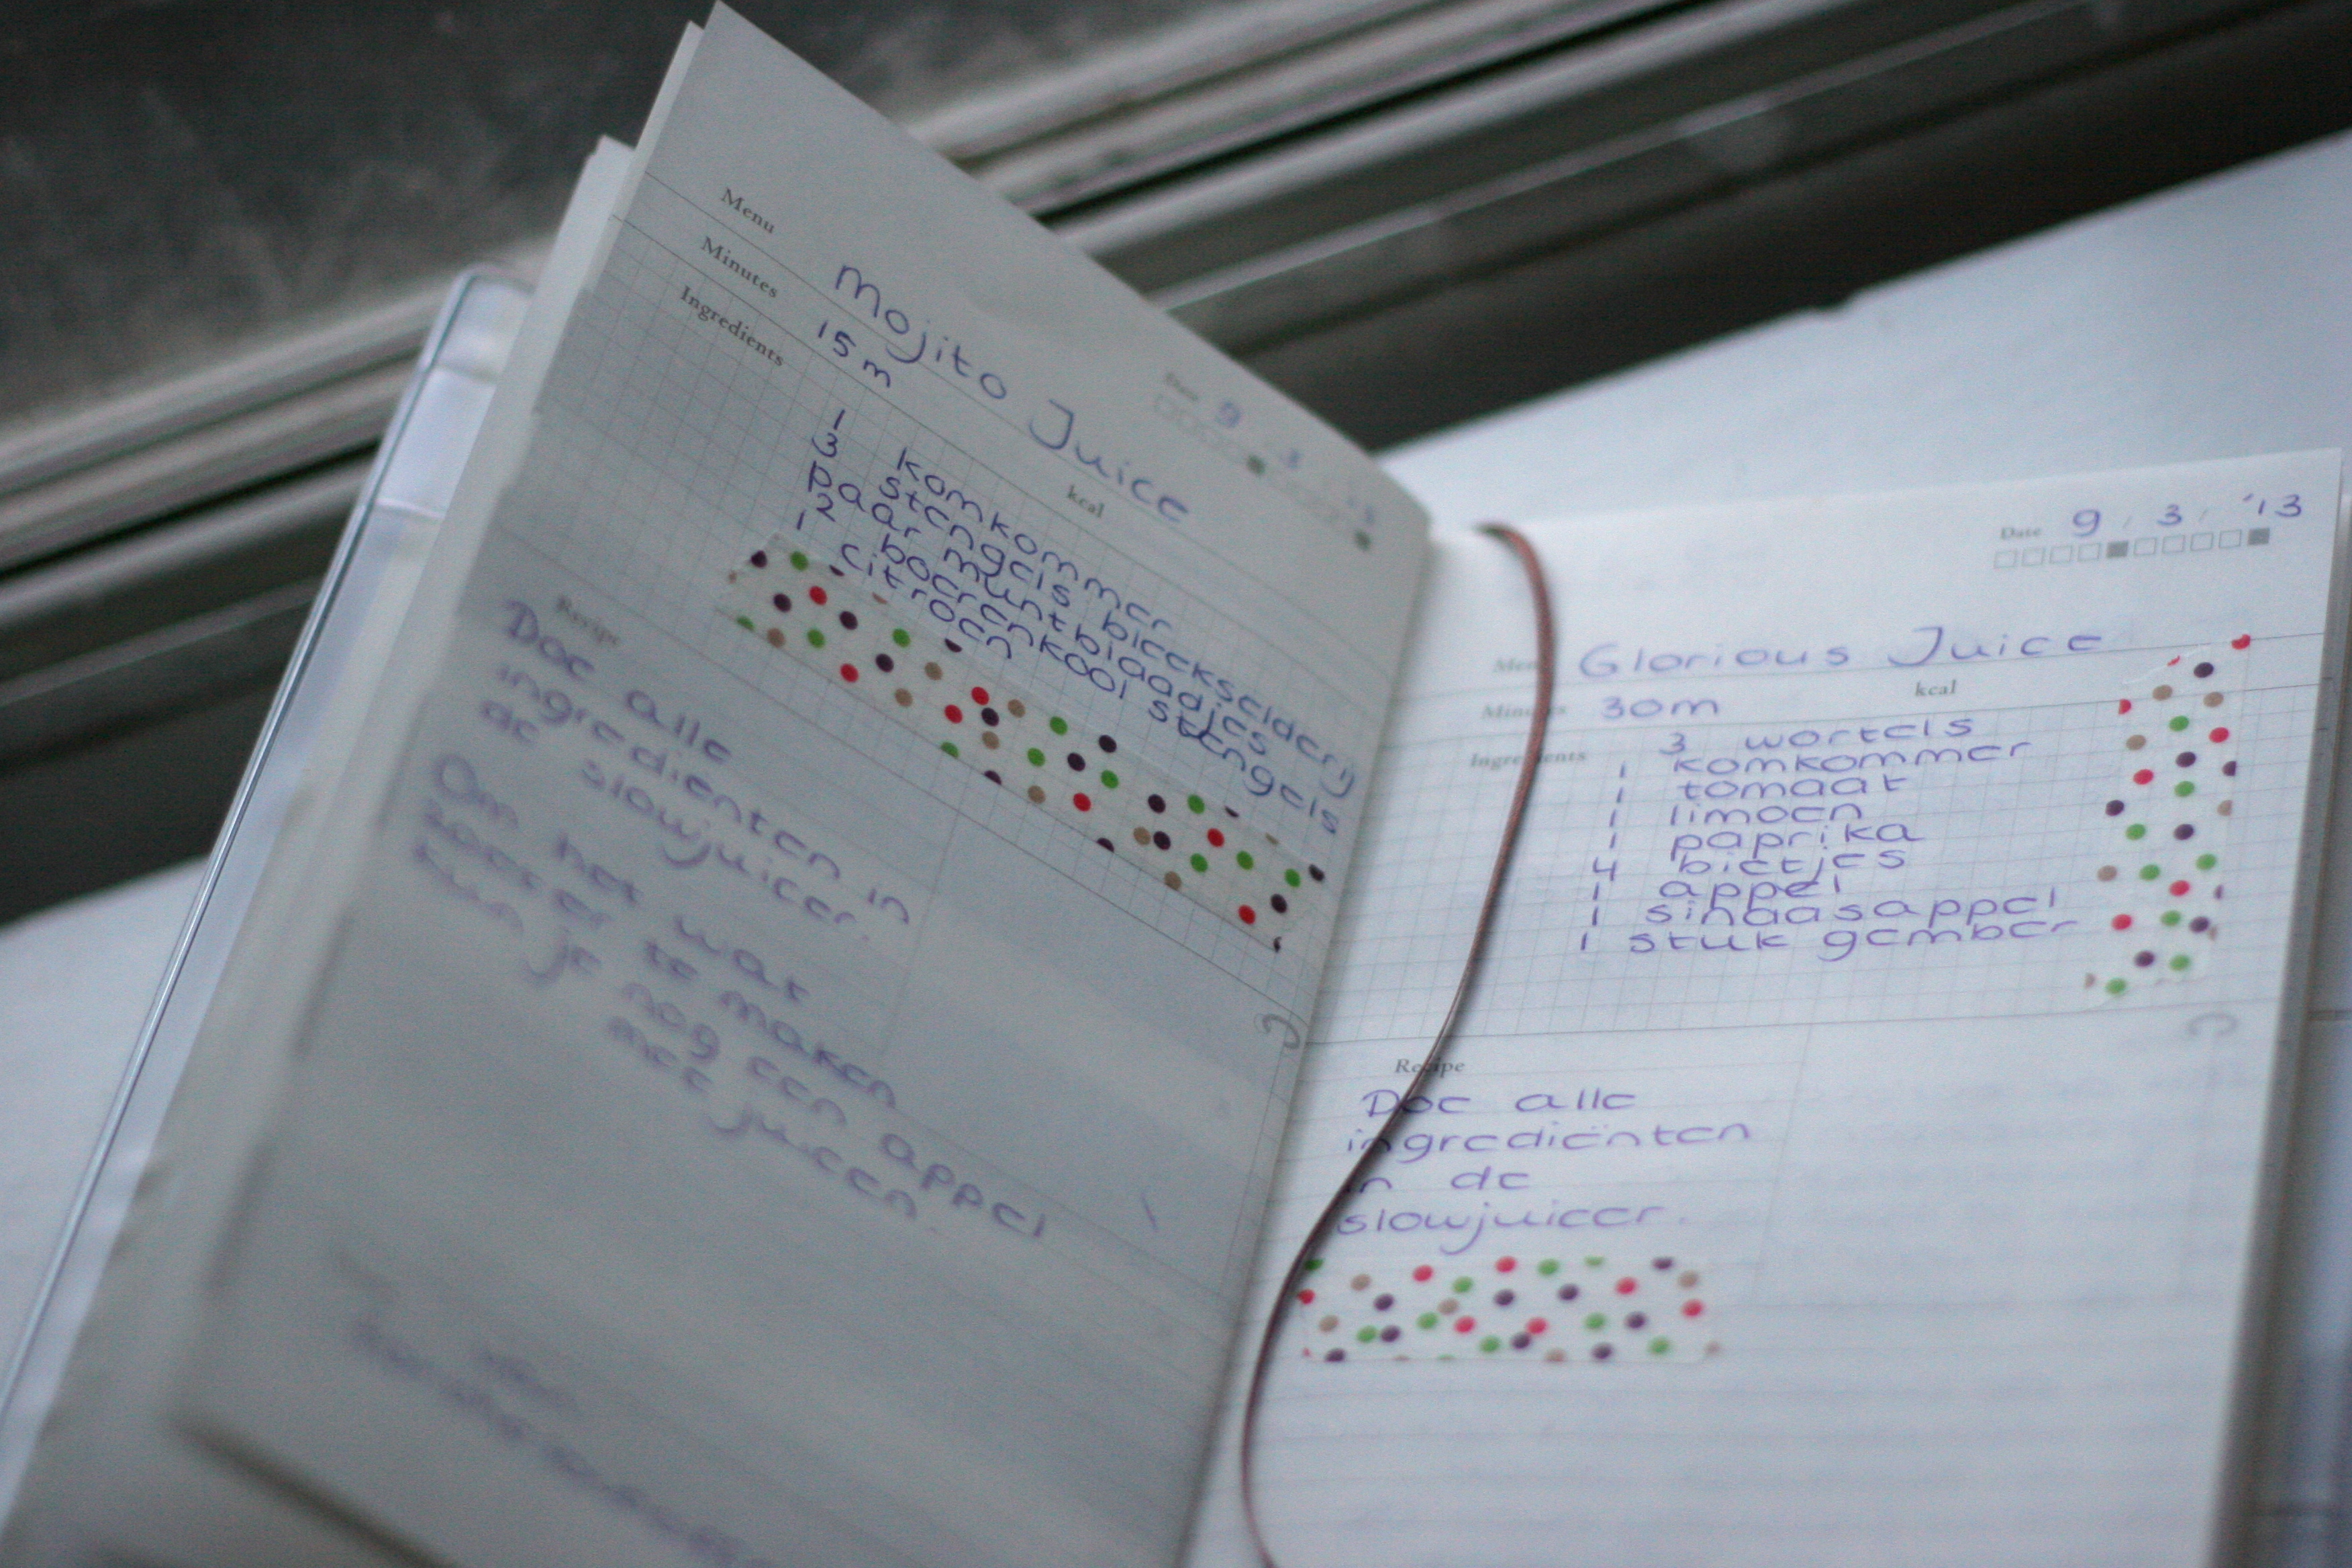 Date 9 3 '13
Menu Mojito Juice
Minutes 15 m kcal
Ingredients
1 komkommer
3 stengels bleekselderij
paar muntblaadjes
2 boerenkool stengels
1 citroen
Recipe
Doe alle
ingrediënten in
de slowjuicer.
Om het wat
zoeter te maken
kun je nog een appel
mee juicen.
Date 9 / 3 / '13
Menu Glorious Juice
Minutes 30m kcal
Ingredients 3 wortels
1 komkommer
1 tomaat
1 limoen
1 paprika
4 bietjes
1 appel
1 sinaasappel
1 stuk gember
Recipe
Doe alle
ingrediënten
in de
slowjuicer.